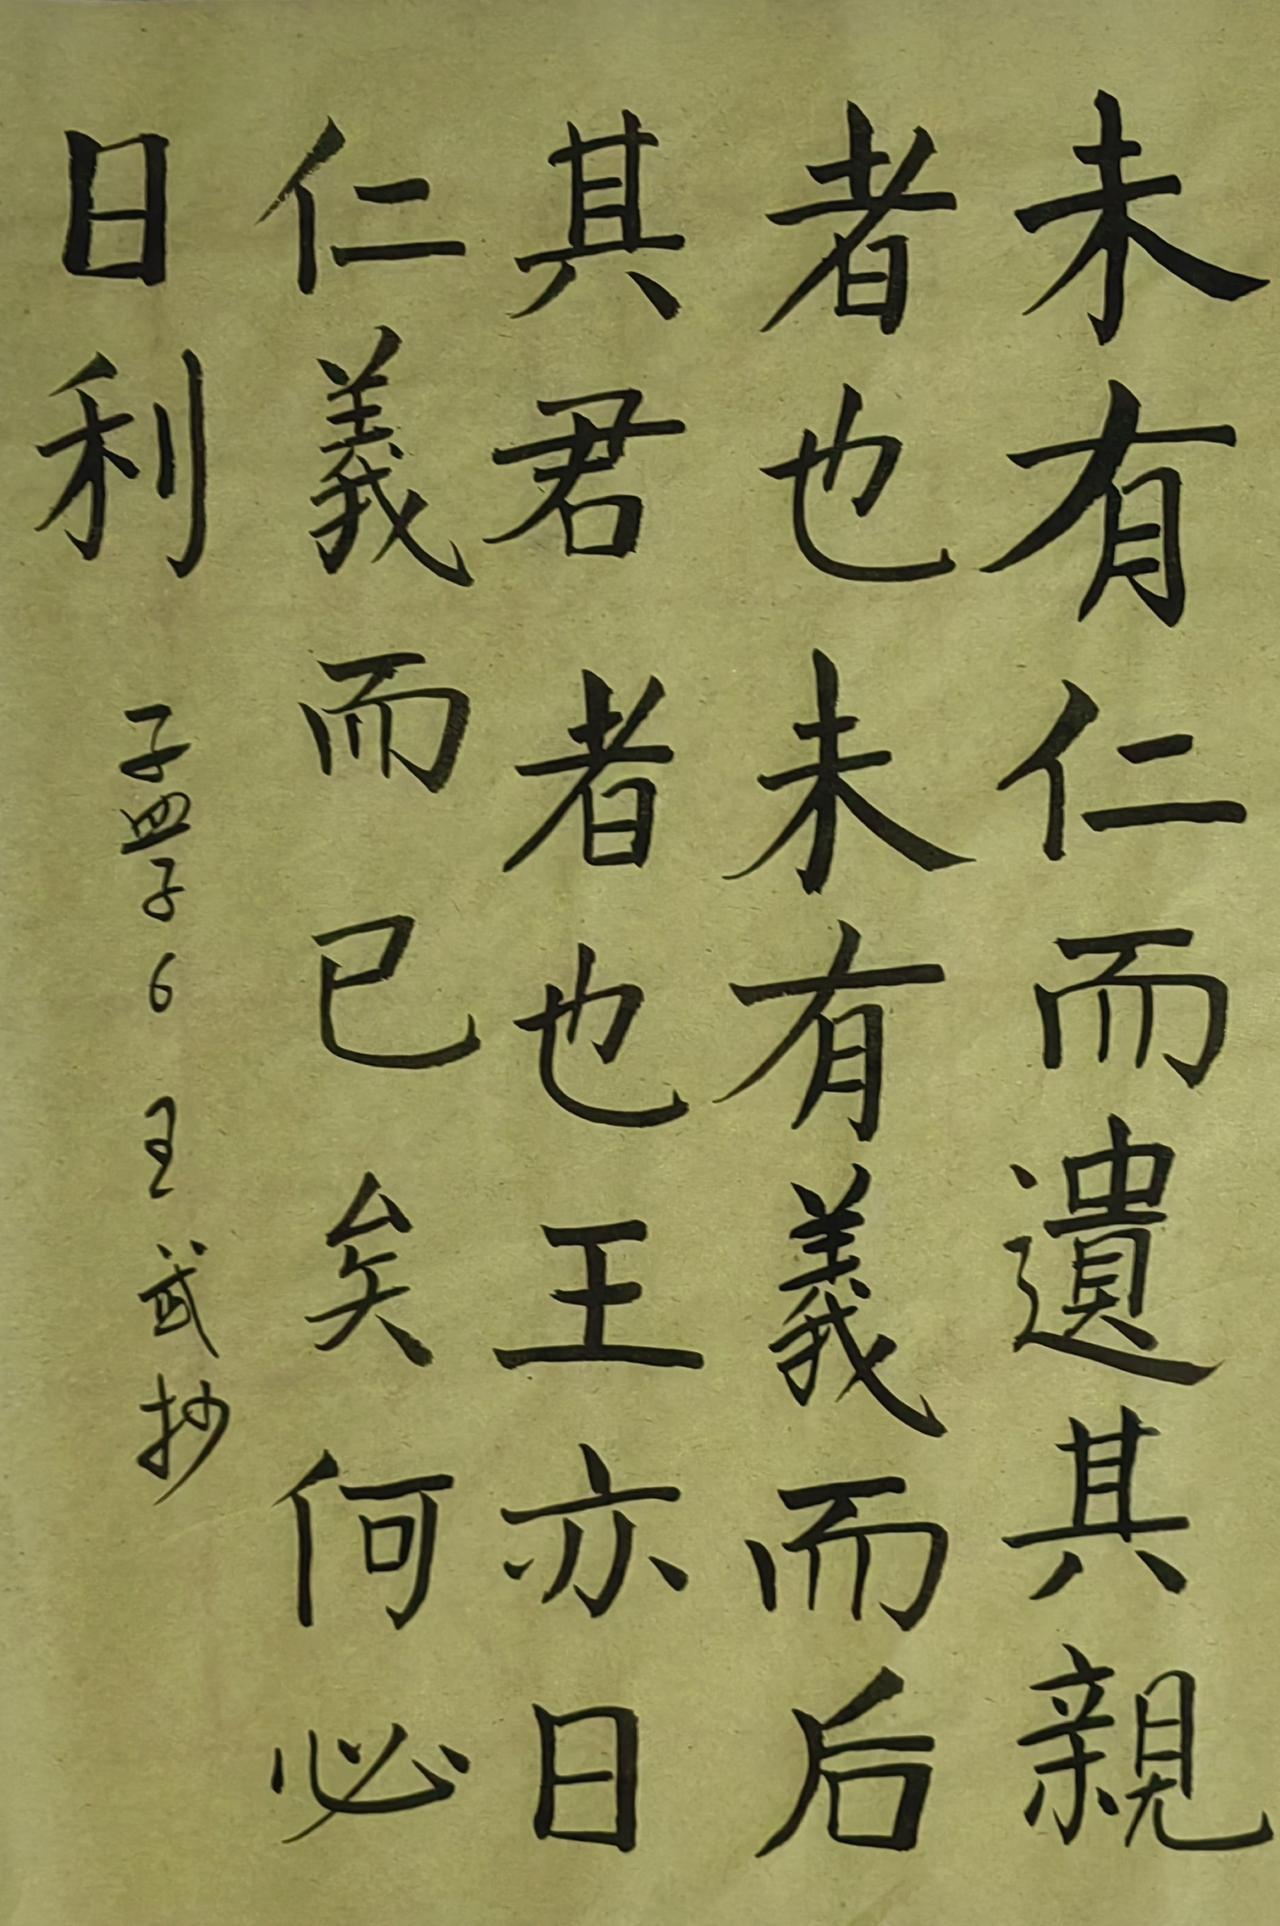 未有仁而遺其親
者也未有義而后
其君者也王亦日
仁義而已矣何必
日利
孟子6 王武抄